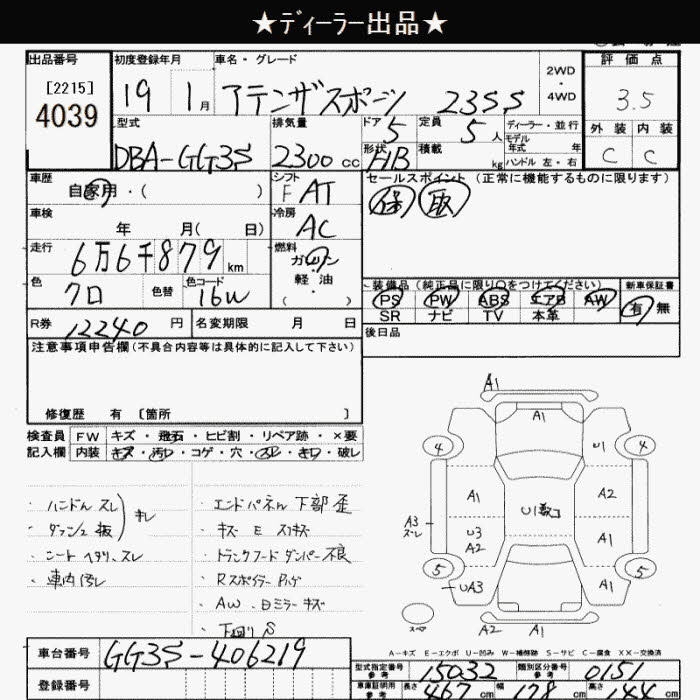 ★ディーラー出品★
出品番号
[2215]
4039
初度登録年月
19 1月
車名・グレード
アテンザスポーツ 23SS
2WD
・
4WD
評価点
3.5
外装 内装
C C
型式
DBA-GG3S
排気量
2300cc
ドア
5
定員
5人
形状
HB
積載
kg
ディーラー・並行
モデル年式 年
ハンドル 左・右
車歴
自家用・( )
シフト
F AT
セールスポイント (正常に機能するものに限ります)
保 取
車検
年 月( 日)
冷房
AC
走行
6万6千879km
燃料
ガソリン
軽油
( )
色
クロ
色替
色コード
16W
装備品(純正品に限り○をつけてください)
PS PW ABS エアB AW
SR ナビ TV 本革
新車保証書
有 無
R券 12240円
名変期限 月 日
後日品
注意事項申告欄(不具合内容等は具体的に記入して下さい)
修復歴 有 〔箇所 〕
検査員記入欄
FW キズ・飛石・ヒビ割・リペア跡・×要
内装 キズ・汚レ・コゲ・穴・スレ・キレ・破レ
・ハンドルスレ
・ダッシュ板
キレ
・シートヘタリ、スレ
・車内汚レ
・エンドパネル下部歪
・キズ E スリキズ
・トランクフードダンパー不良
・Rスポイラー
・AW、ミラーキズ
・下回りS
A1
A1
4
U1
4
A1
A2
U1数コ
A3
スレ
U3
A2
A1
5
5
UA3
A1
スペア
A2 A1
A-キズ E-エクボ U-凹み W-補修跡 S-サビ C-腐食 XX-交換済
車台番号
GG3S-406219
登録番号
型式指定番号
参考
15032
類別区分番号
参考
0151
車庫証明用
参考
長さ 467cm 幅 178cm 高さ 144cm